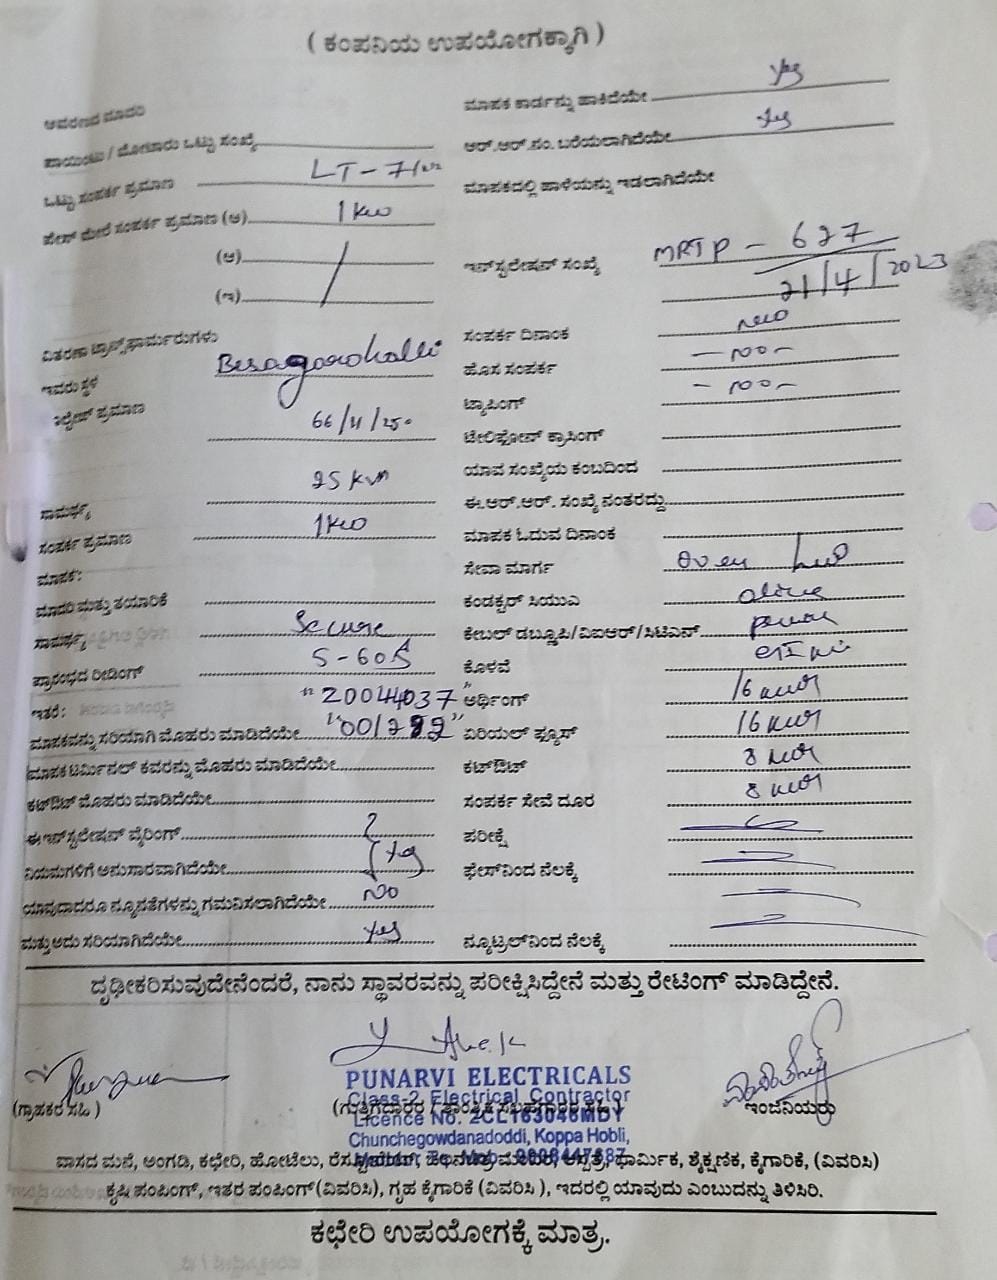 ( ಕಂಪನಿಯ ಉಪಯೋಗಕ್ಕಾಗಿ )
ಆವರಣದ ಮಾದರಿ
ಮಾಪಕ ಕಾರ್ಡನ್ನು ಹಾಕಿದೆಯೇ yes
ಪಾಯಿಂಟು / ಮೋಟಾರು ಒಟ್ಟು ಸಂಖ್ಯೆ
ಆರ್.ಆರ್.ನಂ. ಬರೆಯಲಾಗಿದೆಯೇ yes
ಒಟ್ಟು ಸಂಪರ್ಕ ಪ್ರಮಾಣ LT - 7
ಮಾಪಕದಲ್ಲಿ ಹಾಳೆಯನ್ನು ಇಡಲಾಗಿದೆಯೇ
ಪೇಸ್ ಮೇಲೆ ಸಂಪರ್ಕ ಪ್ರಮಾಣ (ಅ) 1 kw
(ಆ)
ಇನ್‌ಸ್ಟಲೇಷನ್ ಸಂಖ್ಯೆ MRTP - 627
(ಇ)
21/4/2023
ವಿತರಣಾ ಟ್ರಾನ್ಸ್‌ಫಾರ್ಮರುಗಳು
ಸಂಪರ್ಕ ದಿನಾಂಕ
ಇವರು ಸ್ಥಳ Besagarahalli
ಹೊಸ ಸಂಪರ್ಕ
ವೋಲ್ಟೇಜ್ ಪ್ರಮಾಣ 66/11/250
ಟ್ಯಾಪಿಂಗ್
ಟೇಲಿಫೋನ್ ಕ್ರಾಸಿಂಗ್
25 kva
ಯಾವ ಸಂಖ್ಯೆಯ ಕಂಬದಿಂದ
ಸಾಮರ್ಥ್ಯ
ಈ.ಆರ್.ಆರ್. ಸಂಖ್ಯೆ ನಂತರದ್ದು
ಸಂಪರ್ಕ ಪ್ರಮಾಣ 1 kw
ಮಾಪಕ ಓದುವ ದಿನಾಂಕ
ಮಾಪಕ:
ಸೇವಾ ಮಾರ್ಗ over
ಮಾದರಿ ಮತ್ತು ತಯಾರಿಕೆ
ಕಂಡಕ್ಟರ್ ಸಿಯುಎ
ಸಾಮರ್ಥ್ಯ Secure
ಕೇಬಲ್ ಡಬ್ಲೂಪಿ/ವಿಐಆರ್/ಸಿಟಿಎಸ್
ಪ್ರಾರಂಭದ ರೀಡಿಂಗ್ 5-60A
ಕೊಳವೆ
ಇತರೆ: "20044037"
ಅರ್ಥಿಂಗ್ 16
ಮಾಪಕವನ್ನು ಸರಿಯಾಗಿ ಮೊಹರು ಮಾಡಿದೆಯೇ
ಏರಿಯಲ್ ಫ್ಯೂಸ್ 16
ಮಾಪಕ ಟರ್ಮಿನಲ್ ಕವರನ್ನು ಮೊಹರು ಮಾಡಿದೆಯೇ
ಕಟ್‌ಔಟ್ 8
ಕಟ್‌ಔಟ್ ಮೊಹರು ಮಾಡಿದೆಯೇ
ಸಂಪರ್ಕ ಸೇವೆ ದೂರ 8
ಈ ಇನ್‌ಸ್ಟಲೇಷನ್ ವೈರಿಂಗ್
ಪರೀಕ್ಷೆ
ನಿಯಮಗಳಿಗೆ ಅನುಸಾರವಾಗಿದೆಯೇ yes
ಫೇಸ್‌ನಿಂದ ನೆಲಕ್ಕೆ
ಯಾವುದಾದರೂ ನ್ಯೂನತೆಗಳನ್ನು ಗಮನಿಸಲಾಗಿದೆಯೇ No
ಮತ್ತು ಅದು ಸರಿಯಾಗಿದೆಯೇ yes
ನ್ಯೂಟ್ರಲ್‌ನಿಂದ ನೆಲಕ್ಕೆ
ದೃಢೀಕರಿಸುವುದೇನೆಂದರೆ, ನಾನು ಸ್ಥಾವರವನ್ನು ಪರೀಕ್ಷಿಸಿದ್ದೇನೆ ಮತ್ತು ರೇಟಿಂಗ್ ಮಾಡಿದ್ದೇನೆ.
PUNARVI ELECTRICALS
Class-2, Electrical Contractor
(ಗ್ರಾಹಕರ ಸಹಿ)
ಇಂಜಿನಿಯರು
Licence No. 2CL163046MDY
Chunchegowdanadoddi, Koppa Hobli,
ವಾಸದ ಮನೆ, ಅಂಗಡಿ, ಕಛೇರಿ, ಹೋಟೆಲು, ಧಾರ್ಮಿಕ, ಶೈಕ್ಷಣಿಕ, ಕೈಗಾರಿಕೆ, (ವಿವರಿಸಿ)
ಕೃಷಿ ಪಂಪಿಂಗ್, ಇತರ ಪಂಪಿಂಗ್ (ವಿವರಿಸಿ), ಗೃಹ ಕೈಗಾರಿಕೆ (ವಿವರಿಸಿ ), ಇದರಲ್ಲಿ ಯಾವುದು ಎಂಬುದನ್ನು ತಿಳಿಸಿರಿ.
ಕಛೇರಿ ಉಪಯೋಗಕ್ಕೆ ಮಾತ್ರ.